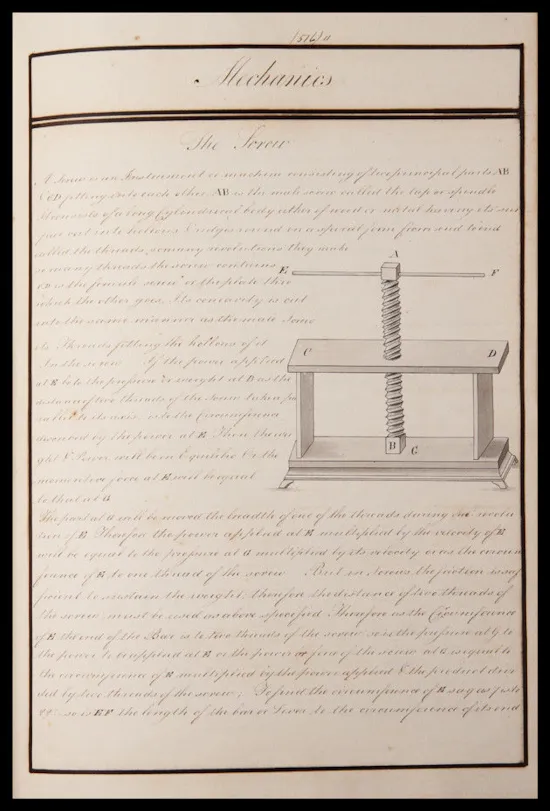 (516)
Mechanics
The Screw
A Screw is an Instrument or machine consisting of two principal parts AB
& CD fitting into each other AB is the male screw called the taper spindle
& consists of a long Cylindrical body either of wood or metal having its sur
face cut into hollows & ridges round on a spiral form from end to end
called the threads, so many revolutions they make
so many threads the screw contains
CD is the female screw or the plate thro
which the other goes. Its concavity is cut
into the same manner as the male screw
its Threads fitting the hollows of it
In the screw If the power applied
at E be to the pressure or weight at D as the
distance of two threads of the Screw taken pa
rallel to its axis, is to the Circumference
described by the power at E Then the wei
ght & Power will be in Equilibrio & the
force at E will be equal
to that at G
The part at G will be moved the breadth of one of the threads during one revolu
tion of E Therefore the power applied at E multiplied by the velocity of E
will be equal to the pressure at G multiplied by its velocity or as the circum
ference of E, to one thread of the screw But in screws the friction is suf
ficient to sustain the weight, therefore the distance of two threads of
the screw, must be used as above specified Therefore as the Circumference
of E the end of the Bar is to two threads of the screw so is the pressure at G to
the power to be applied at E or the power or force of the screw at G is equal to
the circumference of E multiplied by the power applied & the product divi
ded by two threads of the screw; To find the circumference of E say as 7 is to
22 so is EF the length of the bar or Lever, to the circumference of its end
A
E
F
C
D
B
G